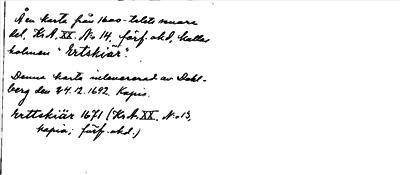 Å en karta från 1600-talets senare
del, Kr.A. XX. No 14, förf. okd, kallas
holmen "Ertskiär".
Denna karta inlevererad av Dahl-
berg den 24.12.1692. Kopia.
Erttskiär 1671 (Kr.A. XX. No 13,
kopia; förf. okd.)